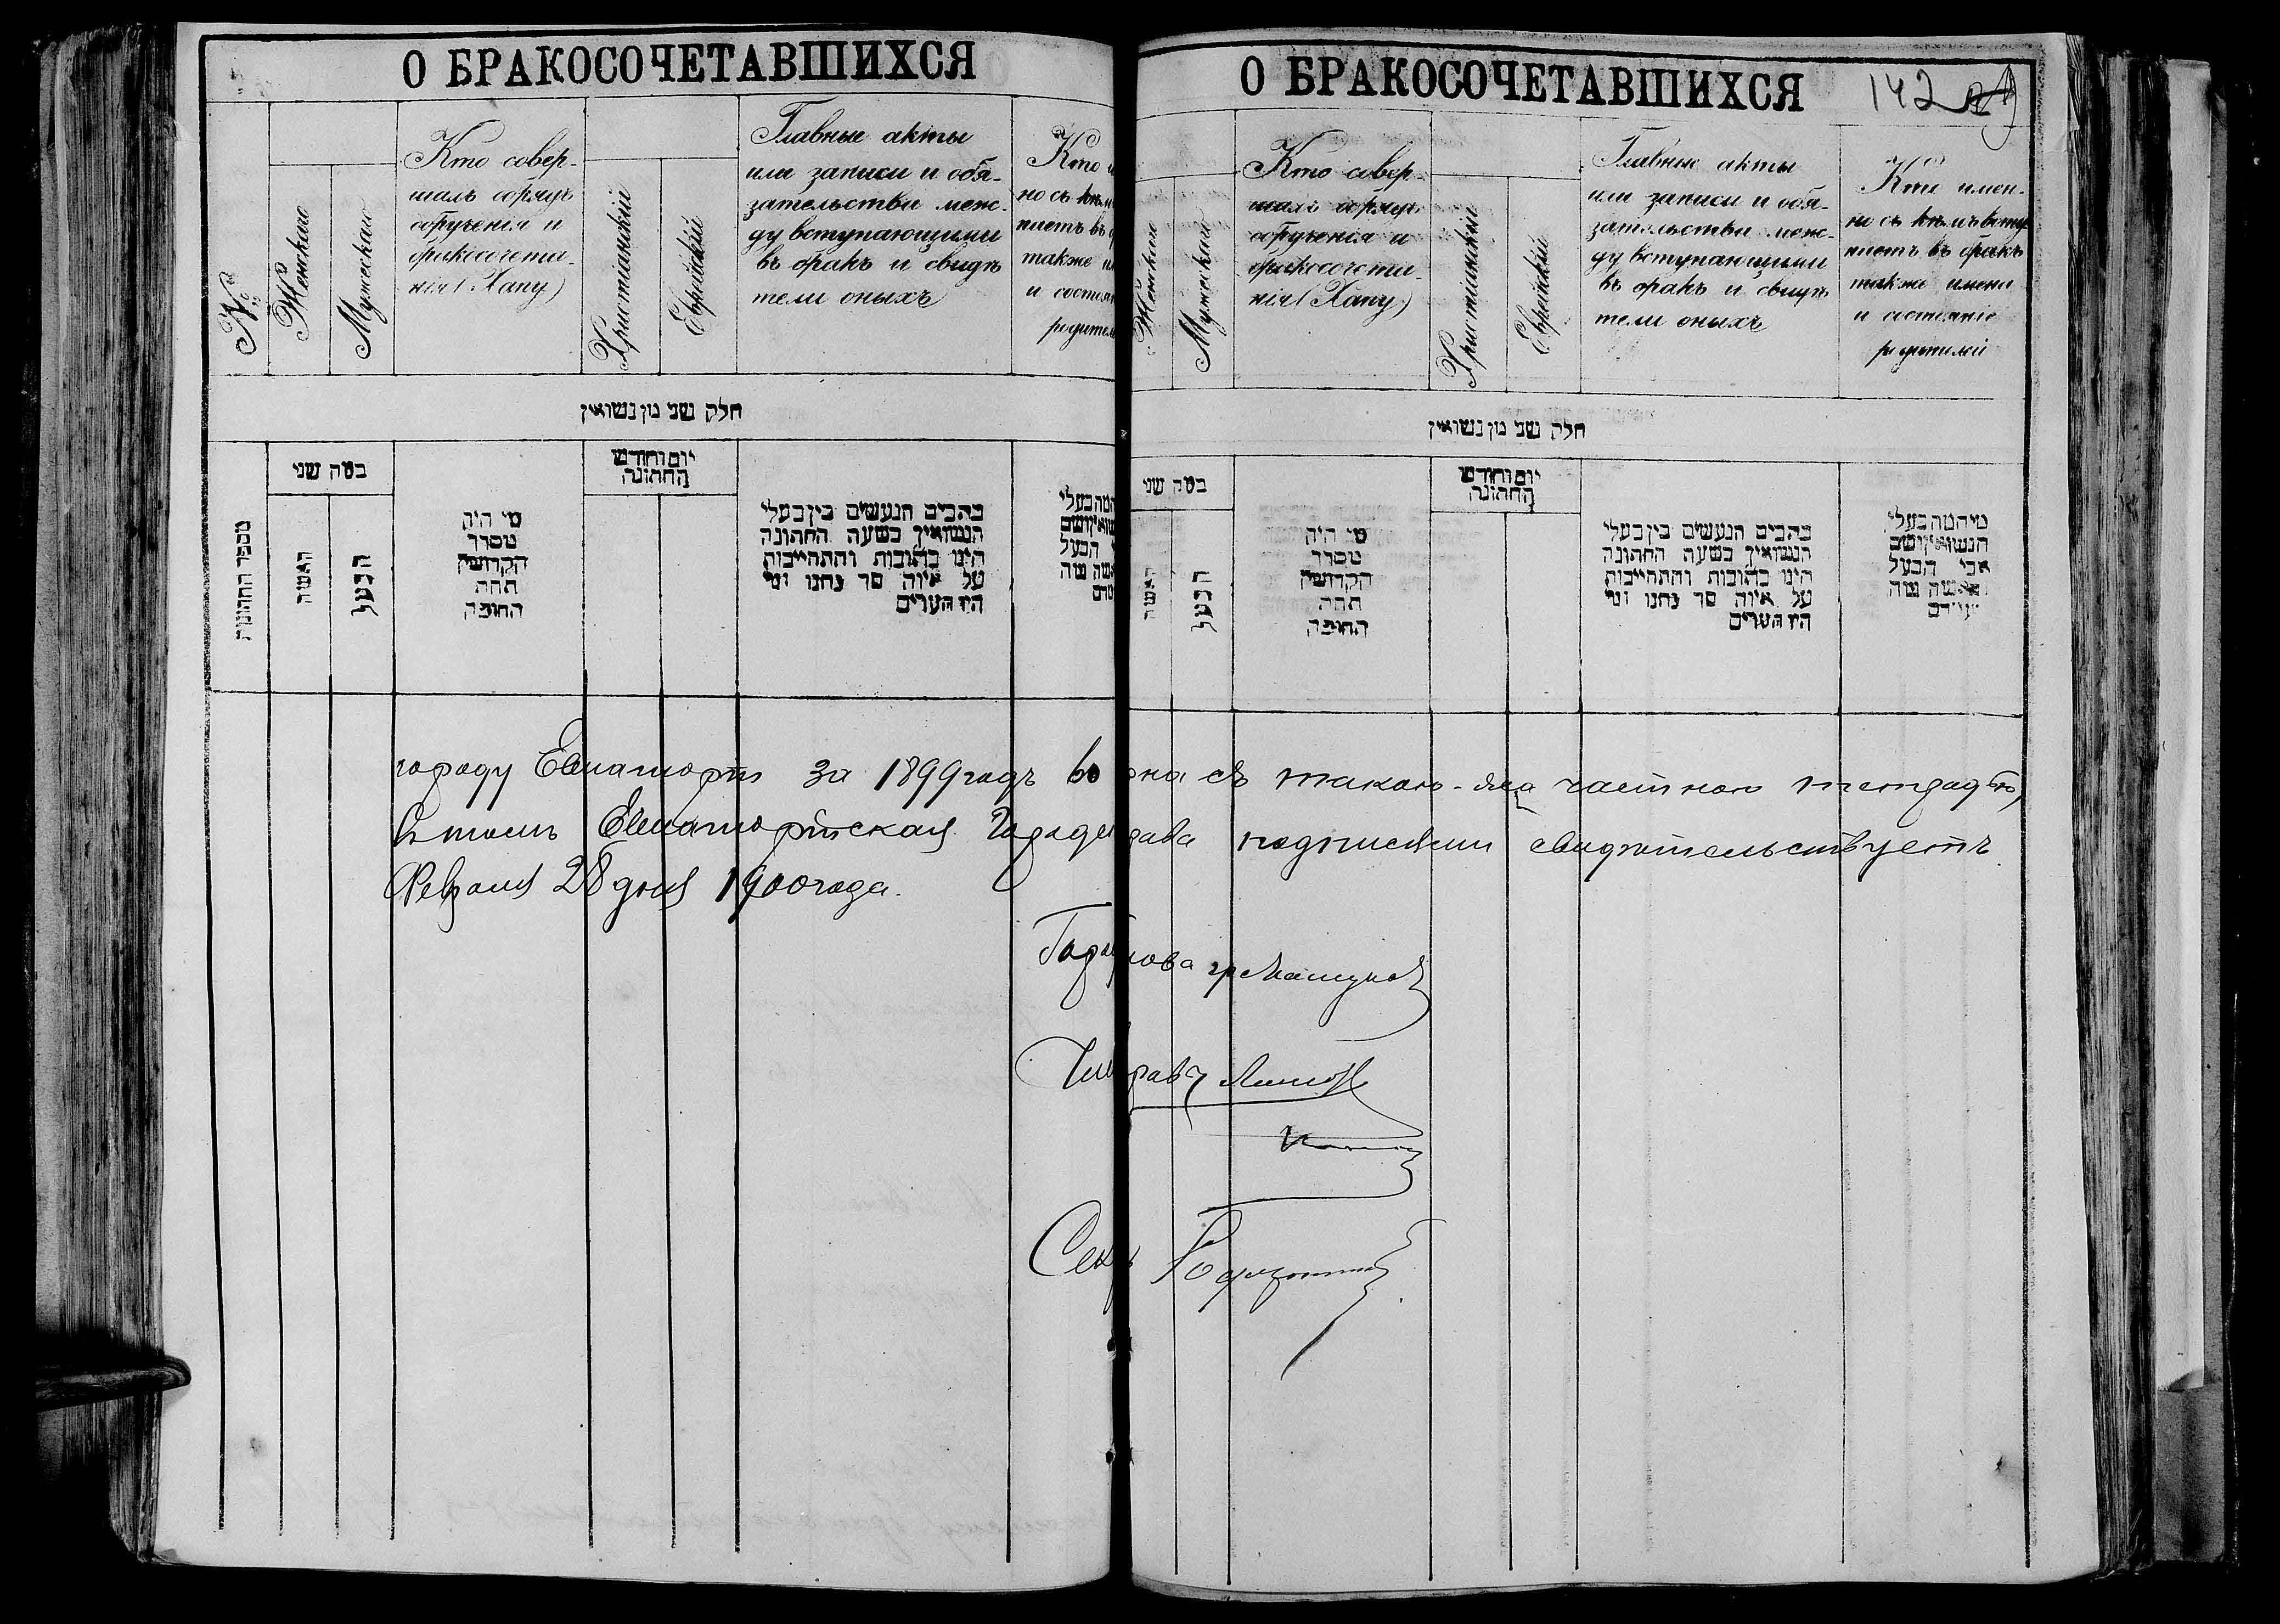 О БРАКОСОЧЕТАВШИХСЯ
№
Женские
Мужеские
Кто совер-
шалъ обрядъ
обрученія и
бракосочета-
нія (Хапу)
Христіанскій
Еврейскій
Главные акты
или записи и обя-
зательства меж-
ду вступающими
въ бракъ и свидѣ
тели оныхъ
Кто
но съ кѣм
пистъ въ
также и
и состоян
родител
חלק שני מן נשואין
מספר החתונות
כמה שני
האשה
הבעל
מי היה
מסדר
הקדושין
תחת
החופה
יום וחודש
החתונה
כתבים הנעשים בין בעלי
הנשואין בשעה החתונה
היינו כתובות והתחייבות
על איזה סך נתנו ומי
היו העדים
О БРАКОСОЧЕТАВШИХСЯ
142
Женские
Мужеские
Кто совер-
шалъ обрядъ
обрученія и
бракосочета-
нія (Хапу)
Христіанскій
Еврейскій
Главные акты
или записи и обя-
зательства меж-
ду вступающими
въ бракъ и свидѣ
тели оныхъ
Кто имен-
но съ кѣмъ всту
пистъ въ бракъ
также имена
и состояніе
родителей
חלק שני מן נשואין
כמה שני
האשה
הבעל
מי היה
מסדר
הקדושין
תחת
החופה
יום וחודש
החתונה
כתבים הנעשים בין בעלי
הנשואין בשעה החתונה
היינו כתובות והתחייבות
על איזה סך נתנו ומי
היו העדים
מי המה בעלי
הנשואין ושם
אבי הבעל
городу Евпаторіи за 1899 годъ вѣрна съ такою-же частною тетрадью,
въ томъ Евпаторійская Город Управа подписями свидѣтельствуетъ.
Февраля 28 дня 1900 года.
Город Голова
Чл Управы
Секр